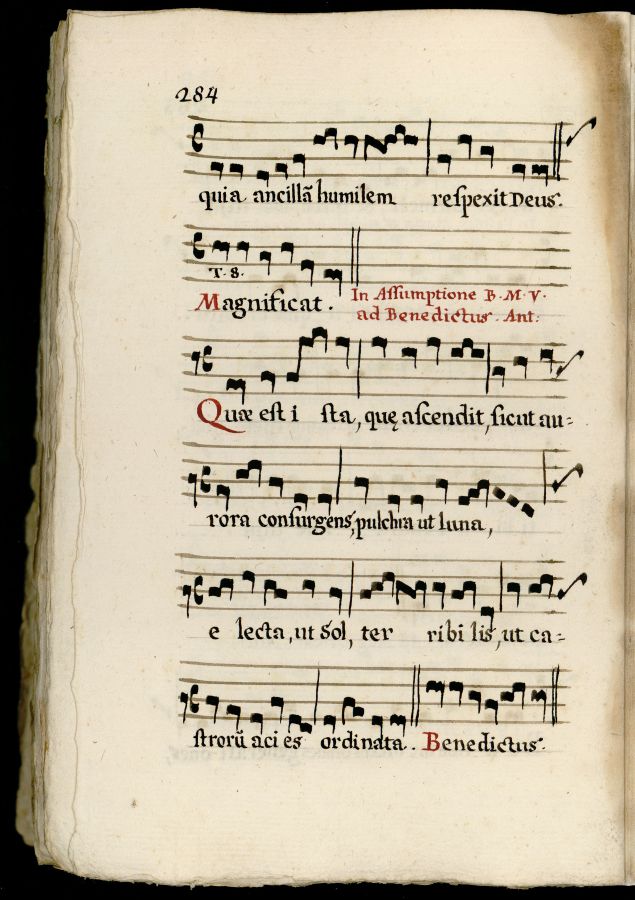 284
quia ancillã humilem reſpexit Deus.
T. 8.
Magnificat. In Aſſumptione B. M. V.
ad Benedictus. Ant:
Quæ est i sta, quę aſcendit, ſicut au=
rora conſurgens, pulchra ut luna,
e lecta, ut Sol, ter ribi lis, ut ca=
ſtrorũ aci es ordinata. Benedictus.